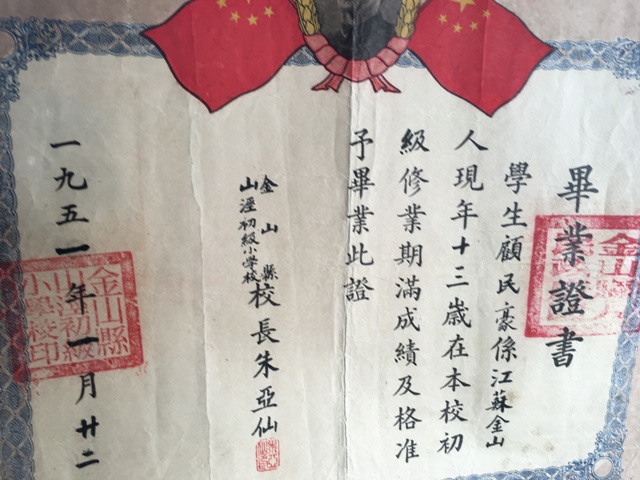 畢業證書
學生顧民豪係江蘇金山
人現年十三歲在本校初
級修業期滿成績及格准
予畢業此證
金山縣
山涇初級小學校
校長朱亞仙
一九五一年一月廿二
金山縣
山涇初級
小學校印